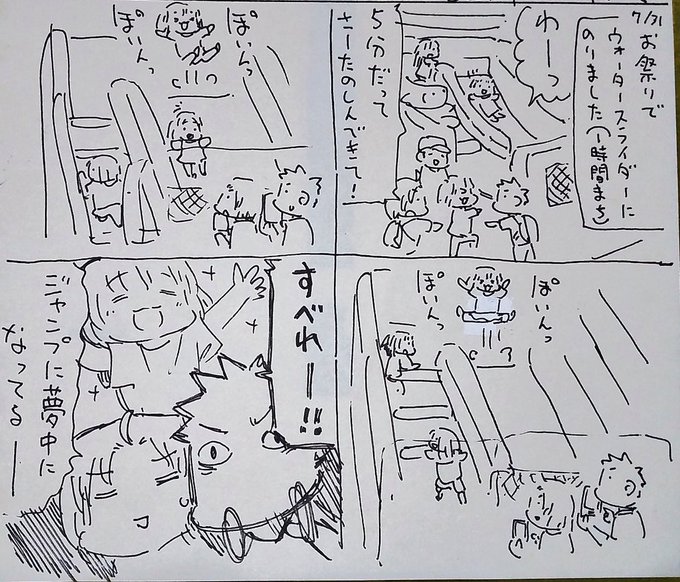 7/31 お祭りで
ウォータースライダーに
のりました(1時間まち)
わーっ
5分だって
さーたのしんできて!
ぽいんっ
ぽいんっ
ぽいんっ
ぽいんっ
すべれー!!
ジャンプに夢中に
なってるー